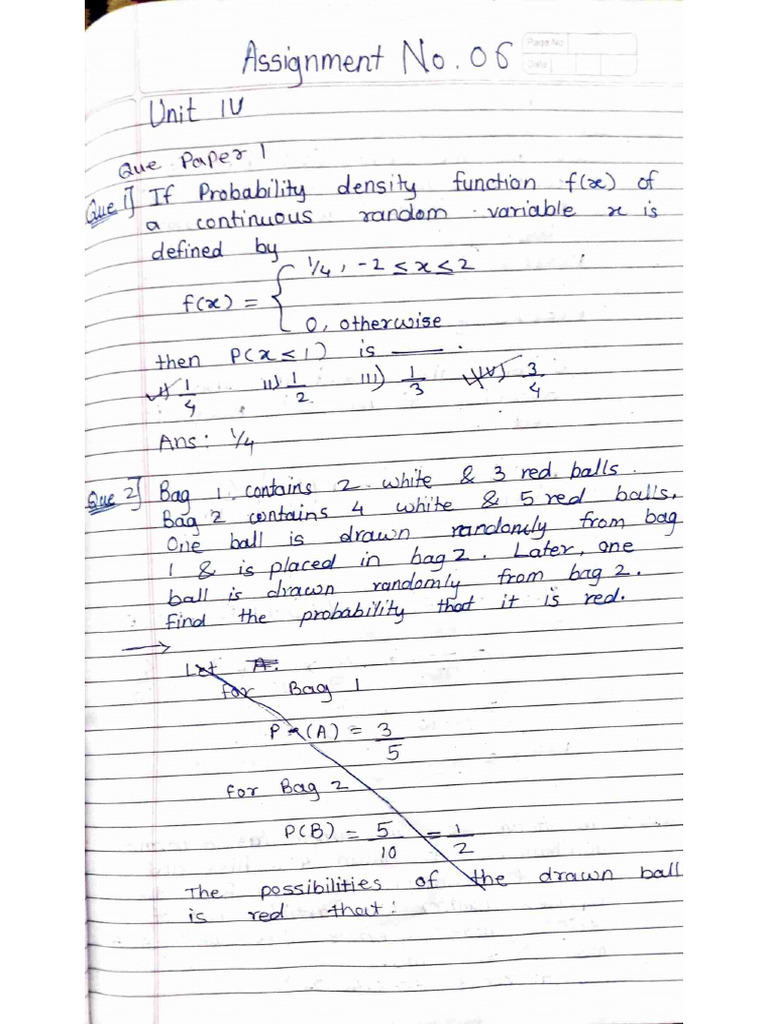 Assignment No. 06
Page No
Date
Unit IV
Que Paper 1
Que 1] If Probability density function f(x) of
a continuous random variable x is
defined by
f(x) = { 1/4, -2 ≤ x ≤ 2
0, otherwise
then P(x ≤ 1) is ___.
i) 1/4 ii) 1/2 iii) 1/3 iv) 3/4
Ans: 1/4
Que 2] Bag 1 contains 2 white & 3 red balls.
Bag 2 contains 4 white & 5 red balls.
One ball is drawn randomly from bag
1 & is placed in bag 2. Later, one
ball is drawn randomly from bag 2.
Find the probability that it is red.
→
Let A:
for Bag 1
P(A) = 3/5
for Bag 2
P(B) = 5/10 = 1/2
The possibilities of the drawn ball
is red that: